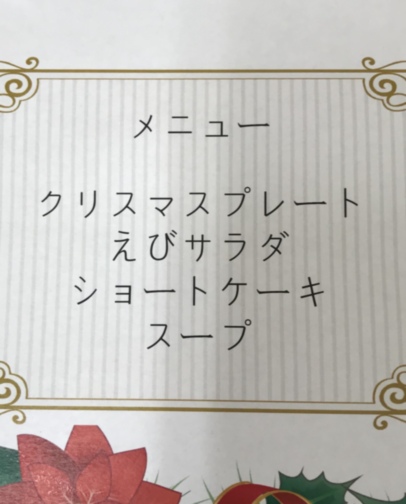 メニュー
クリスマスプレート
えびサラダ
ショートケーキ
スープ